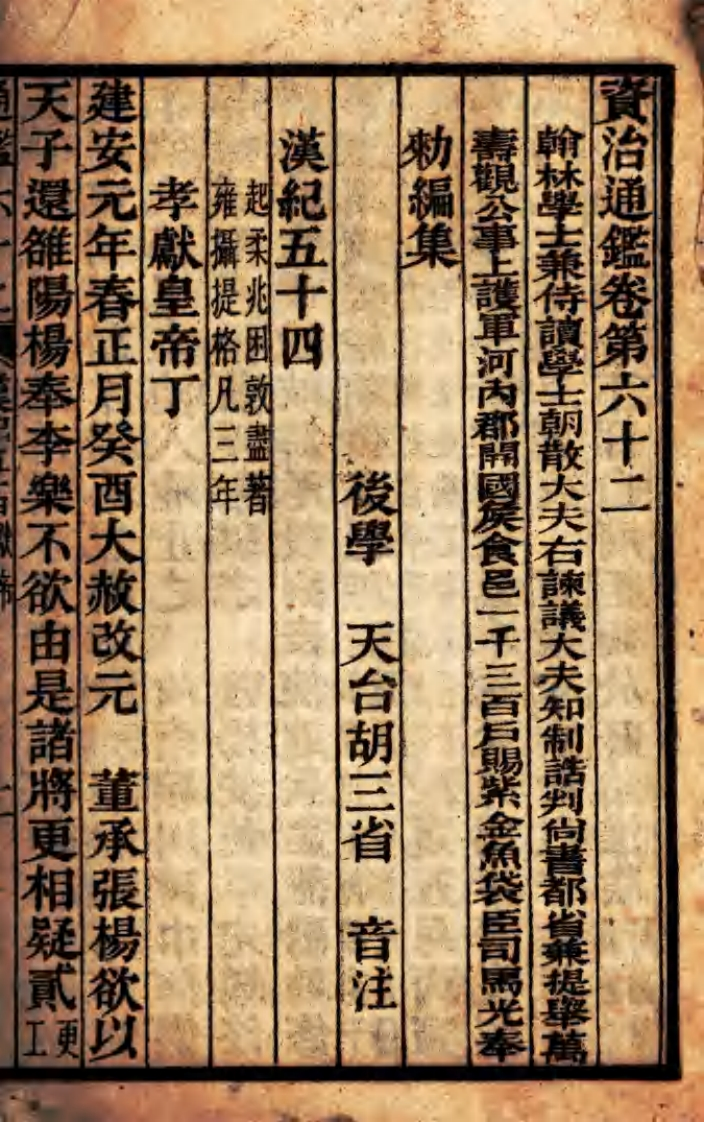 資治通鑑卷第六十二
翰林學士兼侍讀學士朝散大夫右諫議大夫知制誥判尙書都省兼提舉萬
壽觀公事上護軍河內郡開國侯食邑一千三百戶賜紫金魚袋臣司馬光奉
勑編集
後學 天台胡三省 音注
漢紀五十四
起柔兆困敦盡著
雍攝提格凡三年
孝獻皇帝丁
建安元年春正月癸酉大赦改元 董承張楊欲以
天子還雒陽楊奉李樂不欲由是諸將更相疑貳更
工